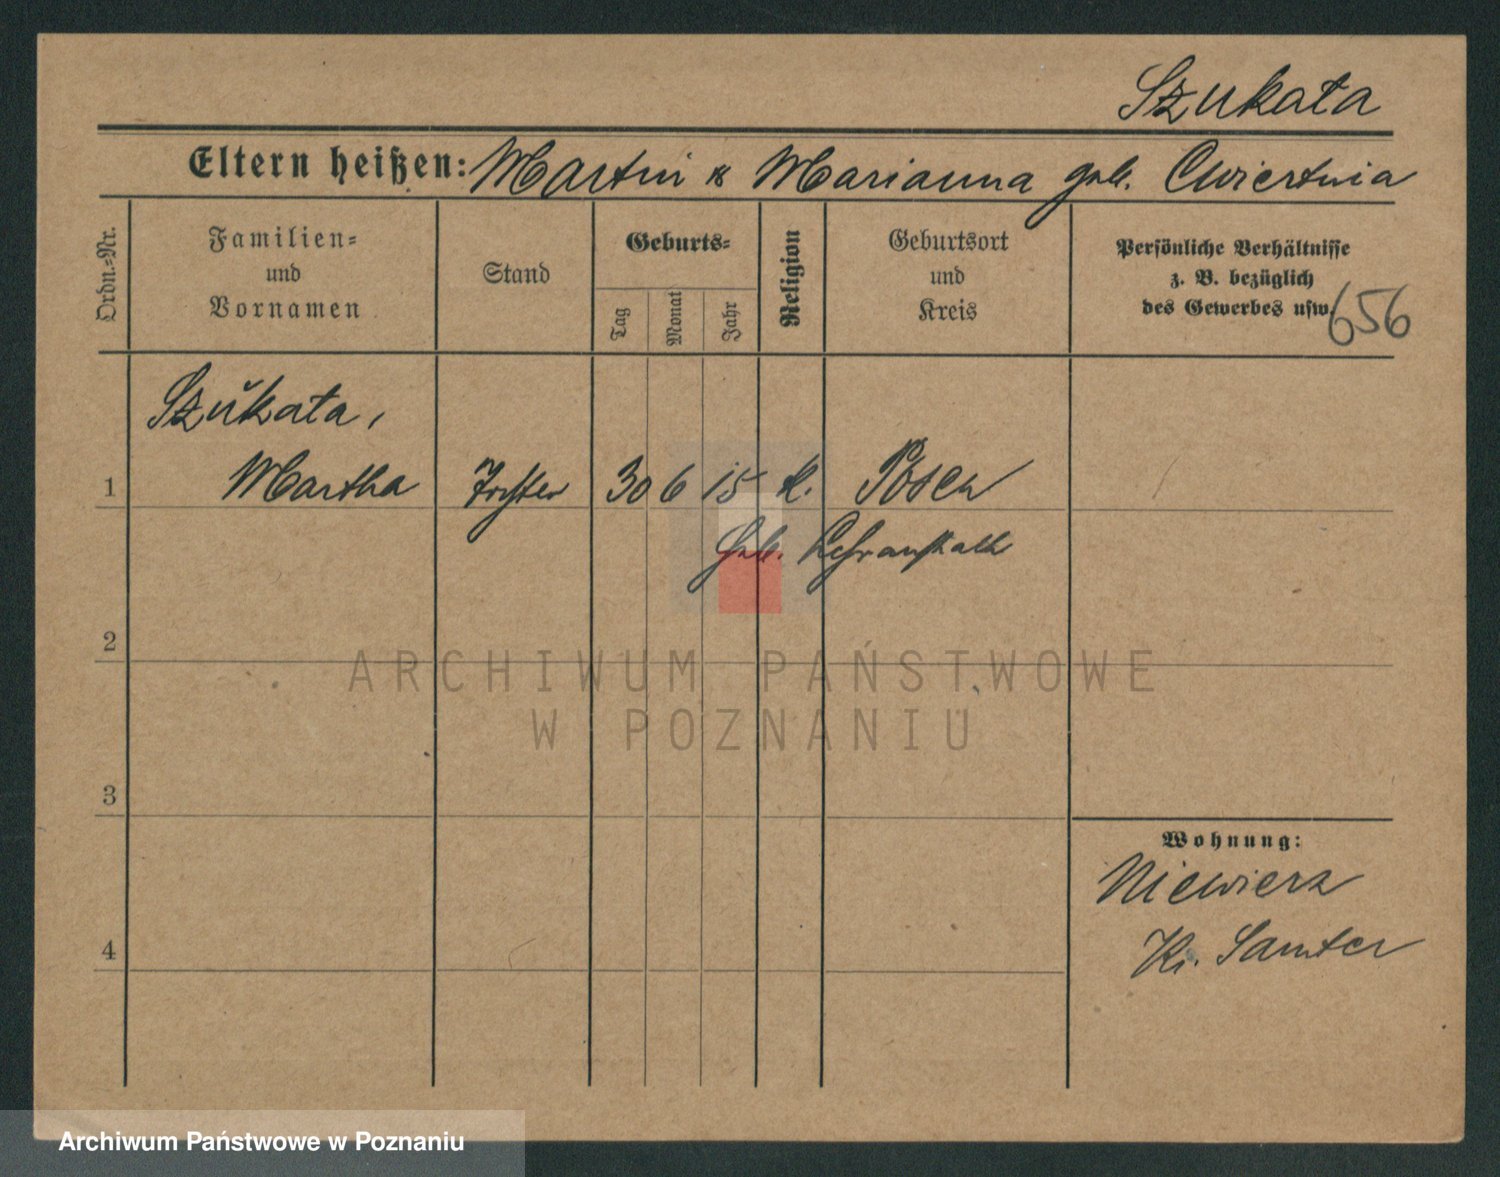 Szukata
Eltern heißen: Martin & Marianna geb. Cwiertnia
Ordn.-Nr.
Familien-
und
Vornamen
Stand
Geburts-
Tag
Monat
Jahr
Religion
Geburtsort
und
Kreis
Persönliche Verhältnisse
z. B. bezüglich
des Gewerbes usw.
656
Szŭkata,
1 Martha Tochter 30 6 15 k. Posen
Geb. Lehranstalt
2
3
4
Wohnung:
Niewierz
Kr. Samter
ARCHIWUM PAŃSTWOWE
W POZNANIU
Archiwum Państwowe w Poznaniu